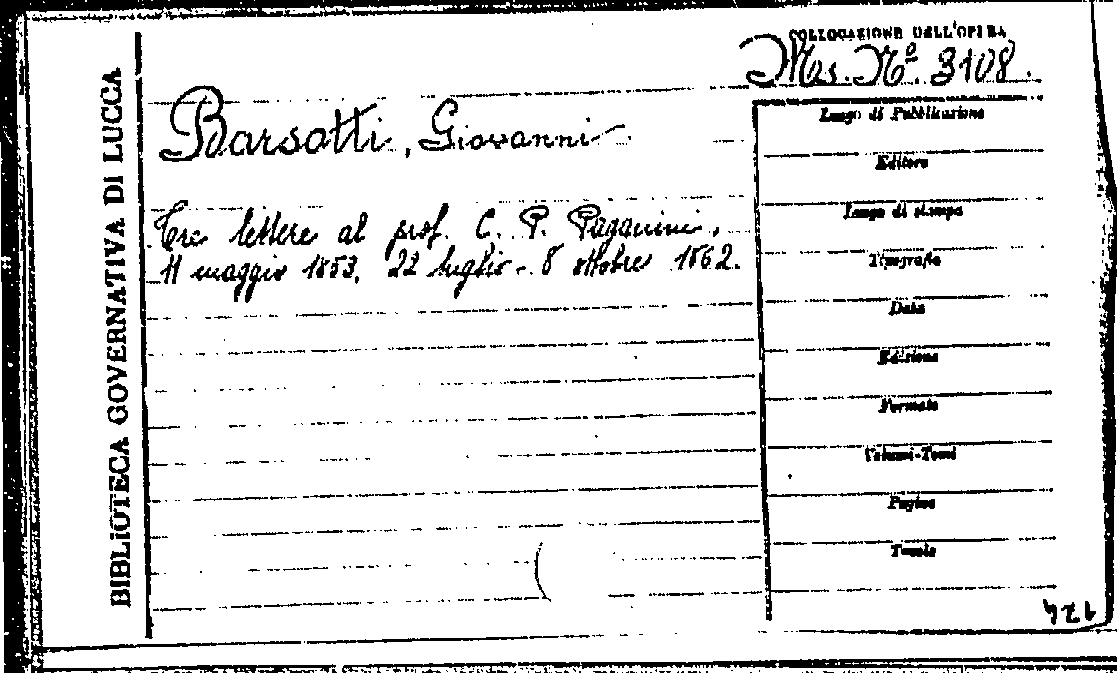 BIBLIOTECA GOVERNATIVA DI LUCCA
COLLOCAZIONE DELL'OPERA
Mss. Nº. 3108.
Barsotti, Giovanni
Tre lettere al prof. C. P. Paganini.
11 maggio 1853, 22 luglio - 8 ottobre 1862.
Luogo di Pubblicazione
Editore
Luogo di stampa
Tipografia
Data
Edizione
Formato
Volumi-Tomi
Pagine
Tavole